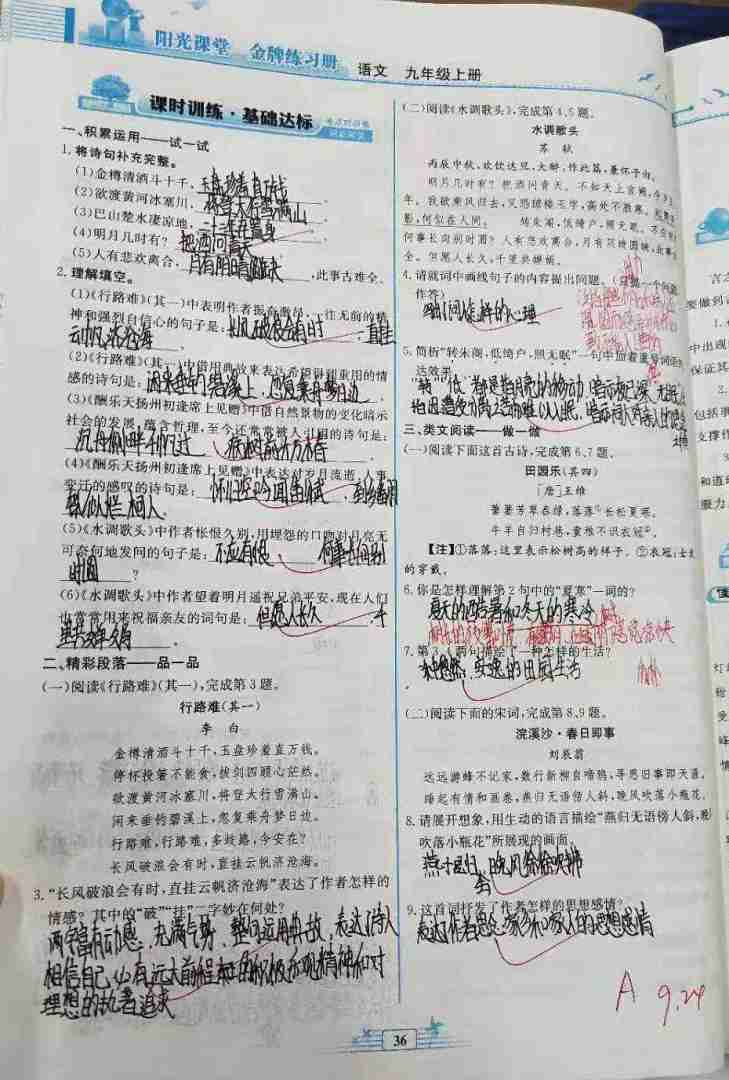 阳光课堂 金牌练习册 语文 九年级上册
课时训练·基础达标
一、积累运用——试一试
1.将诗句补充完整。
(1)金樽清酒斗十千,玉盘珍羞直万钱。
(2)欲渡黄河冰塞川,将登太行雪满山。
(3)巴山楚水凄凉地,二十三年弃置身。
(4)明月几时有?把酒问青天。
(5)人有悲欢离合,月有阴晴圆缺,此事古难全。
2.理解填空。
(1)《行路难》(其一)中表明作者振奋激昂、一往无前的精
神和强烈自信心的句子是:长风破浪会有时,直挂
云帆济沧海。
(2)《行路难》(其一)中借用典故来表达希望得到重用的情
感的诗句是:闲来垂钓碧溪上,忽复乘舟梦日边。
(3)《酬乐天扬州初逢席上见赠》中借自然景物的变化暗示
社会的发展,蕴含哲理,至今还常常被人引用的诗句是:
沉舟侧畔千帆过,病树前头万木春。
(4)《酬乐天扬州初逢席上见赠》中表达对岁月流逝、人事
变迁的感叹的诗句是:怀旧空吟闻笛赋,到乡翻
似烂柯人。
(5)《水调歌头》中作者怅恨久别,用埋怨的口吻对月亮无
可奈何地发问的句子是:不应有恨,何事长向别
时圆?
(6)《水调歌头》中作者望着明月遥祝兄弟平安,现在人们
也常常用来祝福亲友的词句是:但愿人长久,千
里共婵娟。
二、精彩段落——品一品
(一)阅读《行路难》(其一),完成第3题。
行路难(其一)
李 白
金樽清酒斗十千,玉盘珍羞直万钱。
停杯投箸不能食,拔剑四顾心茫然。
欲渡黄河冰塞川,将登太行雪满山。
闲来垂钓碧溪上,忽复乘舟梦日边。
行路难,行路难,多歧路,今安在?
长风破浪会有时,直挂云帆济沧海。
3.“长风破浪会有时,直挂云帆济沧海”表达了作者怎样的
情感?其中的“破”“挂”二字妙在何处?
两字富有动感,充满气势,整句运用典故,表达诗人
相信自己必有远大前程和的积极乐观精神和对
理想的执着追求
(二)阅读《水调歌头》,完成第4、5题。
水调歌头
苏 轼
丙辰中秋,欢饮达旦,大醉,作此篇,兼怀子由。
明月几时有?把酒问青天。不知天上宫阙,今夕
年。我欲乘风归去,又恐琼楼玉宇,高处不胜寒。起舞
影,何似在人间。 转朱阁,低绮户,照无眠。不应有
何事长向别时圆?人有悲欢离合,月有阴晴圆缺,此事
全。但愿人长久,千里共婵娟。
4.请就词中画线句子的内容提出问题。(只提一个问题
作答)
怎样的心理
5.简析“转朱阁,低绮户,照无眠”一句中加着重号词语的
达效果。
“转”“低”都是指月亮的移动,暗示夜已深,
三、类文阅读——做一做
(一)阅读下面这首古诗,完成第6、7题。
田园乐(其四)
[唐]王维
萋萋芳草春绿,落落①长松夏寒。
牛羊自归村巷,童稚不识衣冠②。
【注】①落落:这里表示松树高的样子。②衣冠:士
的穿戴。
6.你是怎样理解第2句中的“夏寒”一词的?
夏天的酷暑和冬天的寒冷
7.第3、4两句描绘了一种怎样的生活?
悠然,安逸的田园生活
(二)阅读下面的宋词,完成第8、9题。
浣溪沙·春日即事
刘辰翁
远远游蜂不记家,数行新柳自啼鸦,寻思旧事即天涯。
睡起有情和画卷,燕归无语傍人斜,晚风吹落小瓶花。
8.请展开想象,用生动的语言描绘“燕归无语傍人斜,晚
吹落小瓶花”所展现的画面。
燕子归,晚风徐徐吹拂
9.这首词抒发了作者怎样的思想感情?
表达作者思念家乡和家人的思想感情
A 9.24
36